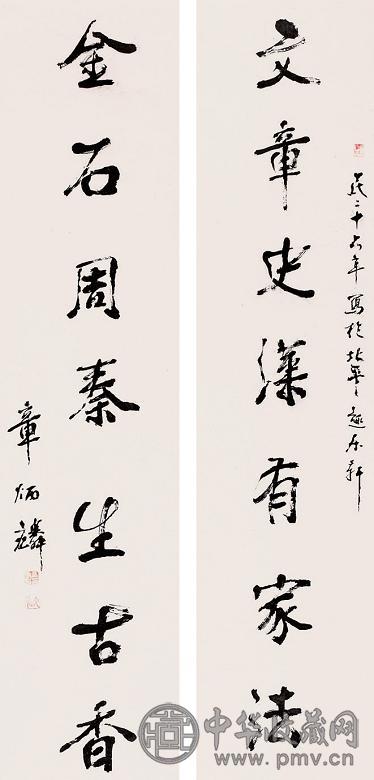 民三十六年寫於北平逸居軒
文章史漢有家法
金石周秦生古香
章炳麟
中华收藏网
www.pmv.cn